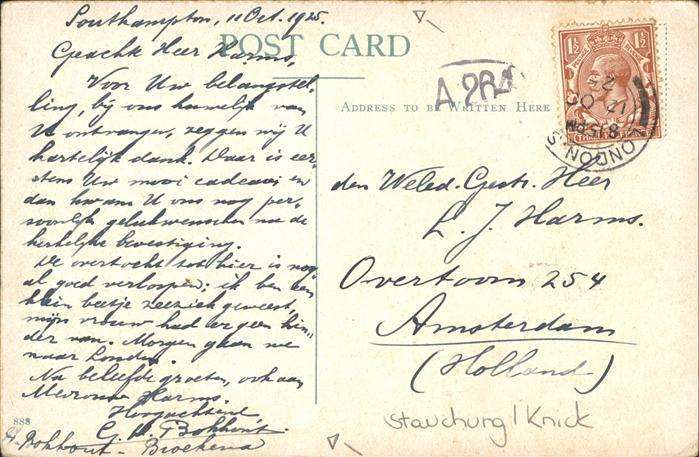 Southampton, 11 Oct. 1925.
Geachte Heer Harms,
Voor Uw belangstel-
ling, bij ons huwelijk van
U ontvangen, zeggen wij U
hartelijk dank. Daar is eer-
stens Uw mooi cadeau en
dan kwam U ons nog per-
soonlijk gelukwenschen na de
kerkelijke bevestiging.
De overtocht tot hier is nog
al goed verloopen; ik ben een
klein beetje zeeziek geweest,
mijn vrouw had er geen hin-
der van. Morgen gaan we
naar Londen.
Na beleefde groeten, ook aan
Mevrouw Harms.
Hoogachtend,
G. W. Bokhout
Bokhout - Broekema
888
POST CARD
ADDRESS TO BE WRITTEN HERE
A 284
1½ 1½
LONDON S
8.15 PM
12 OC
25
den Weled. Gestr. Heer
L. J. Harms.
Overtoom 254
Amsterdam
(Holland)
Stauchung/Knick